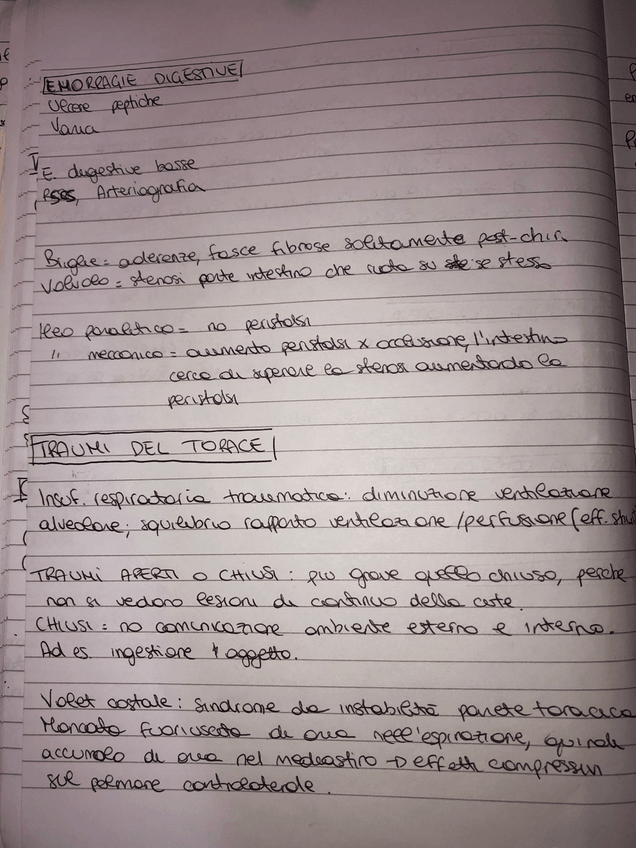 EMORRAGIE DIGESTIVE
Ulcere peptiche
Varici
E. digestive basse
EGDS, Arteriografia
Briglie = aderenze, fasce fibrose solitamente post-chir.
Volvolo = stenosi parte intestino che ruota su se stesso
Ileo paralitico = no peristalsi
" meccanico = aumento peristalsi x occlusione, l'intestino
cerca di superare la stenosi aumentando la
peristalsi
TRAUMI DEL TORACE
Insuf. respiratoria traumatica: diminuzione ventilazione
alveolare; squilibrio rapporto ventilazione/perfusione (eff.
TRAUMI APERTI O CHIUSI: più grave quello chiuso, perché
non si vedono lesioni di continuo della cute.
CHIUSI = no comunicazione ambiente esterno e interno.
Ad es. ingestione oggetto.
Volet costale: sindrome da instabilità parete toracica
Mancata fuoriuscita di aria nell'espirazione, quindi
accumulo di aria nel mediastino → effetti compressivi
sul polmone controlaterale.